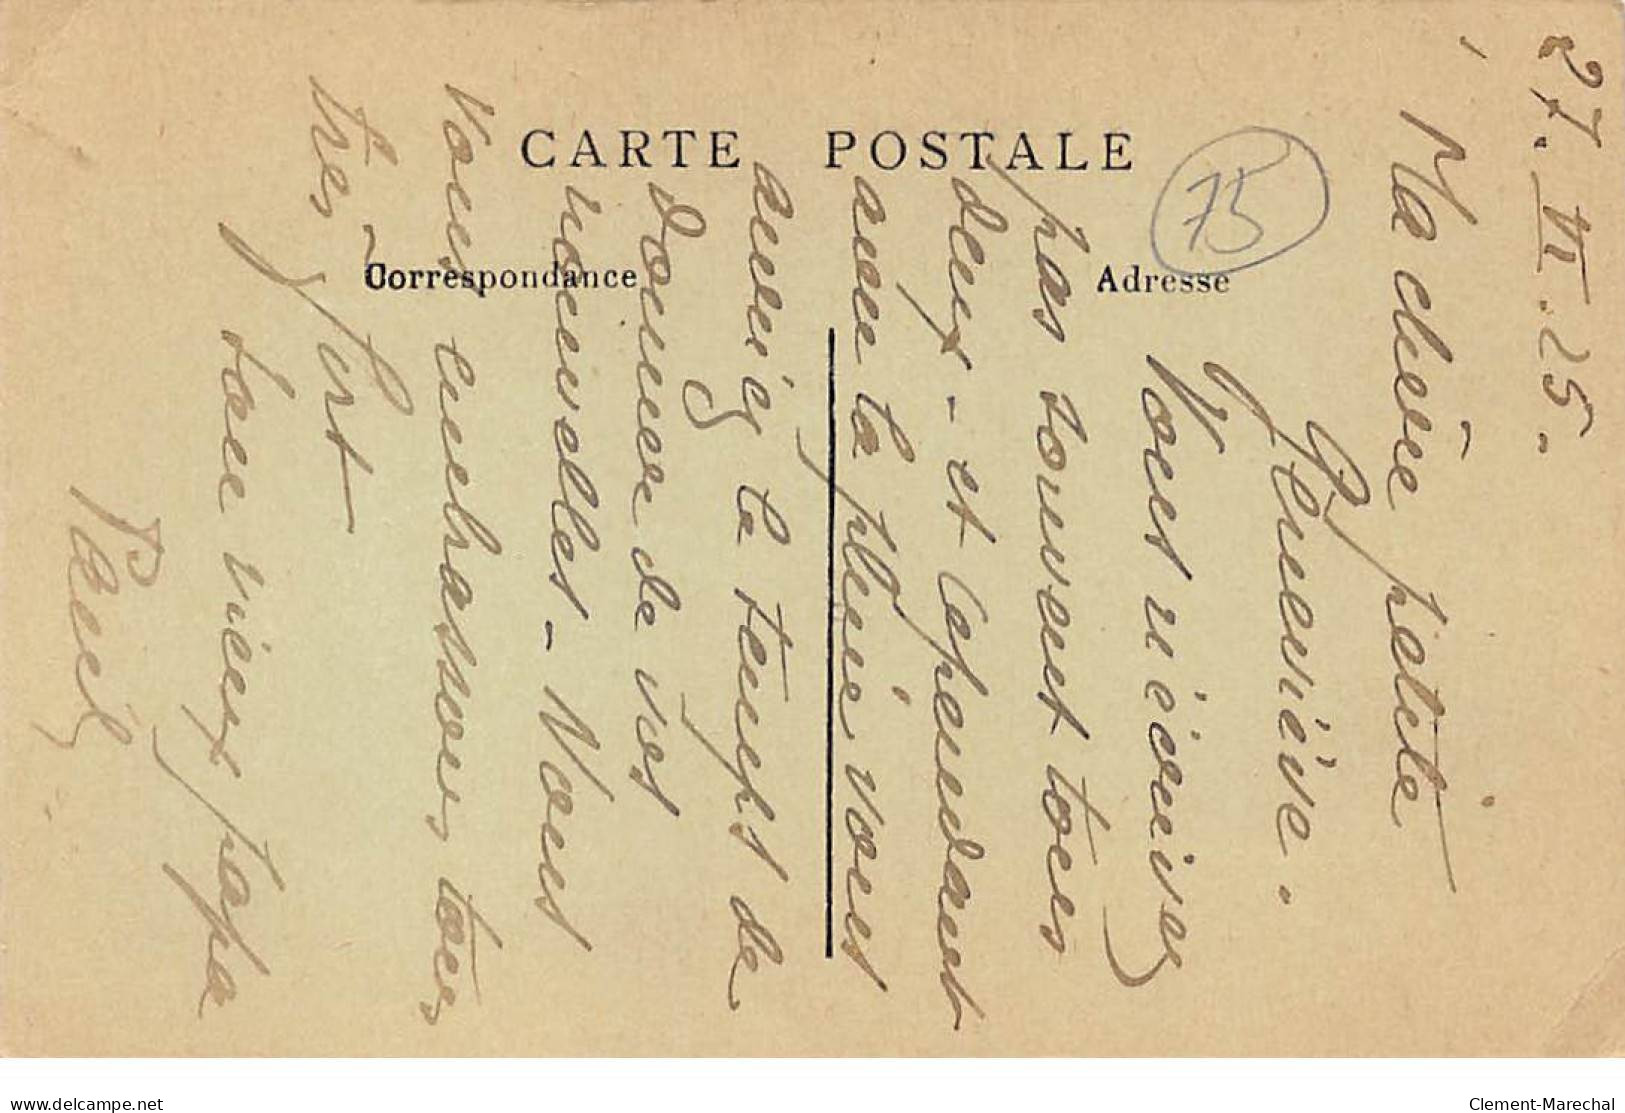 CARTE POSTALE
Correspondance
Adresse
75
27.VI.25.
Ma chère petite
Geneviève.
Vous n'écrivez
pas souvent tous
deux - et cependant
avec la pluie vous
auriez le temps de
donner de vos
nouvelles - Nous
vous embrassons tous
très fort
ton vieux papa
Paul
www.delcampe.net
Clement-Marechal